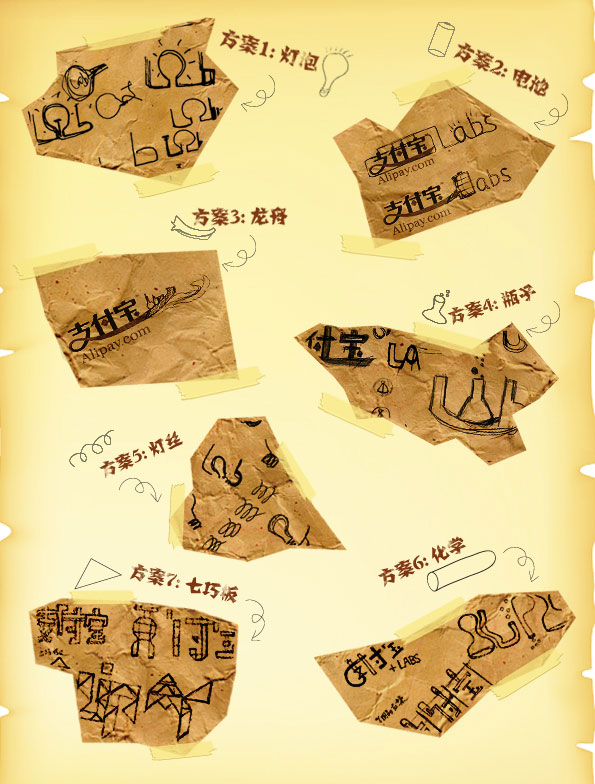 方案1: 灯泡
方案2: 电池
支付宝 Labs
Alipay.com
支付宝 Labs
Alipay.com
方案3: 龙舟
支付宝
Alipay.com
方案4: 瓶子
付宝 LA
方案5: 灯丝
方案6: 化学
支付宝
+ LABS
方案7: 七巧板
支付宝